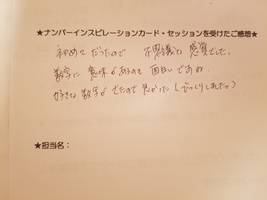 ★ナンバーインスピレーションカード・セッションを受けたご感想★
初めてだったので 不思議な感覚でした。
数字に意味があるのも面白いですね。
好きな数字がでたので良かった(びっくりしました)
★担当名：